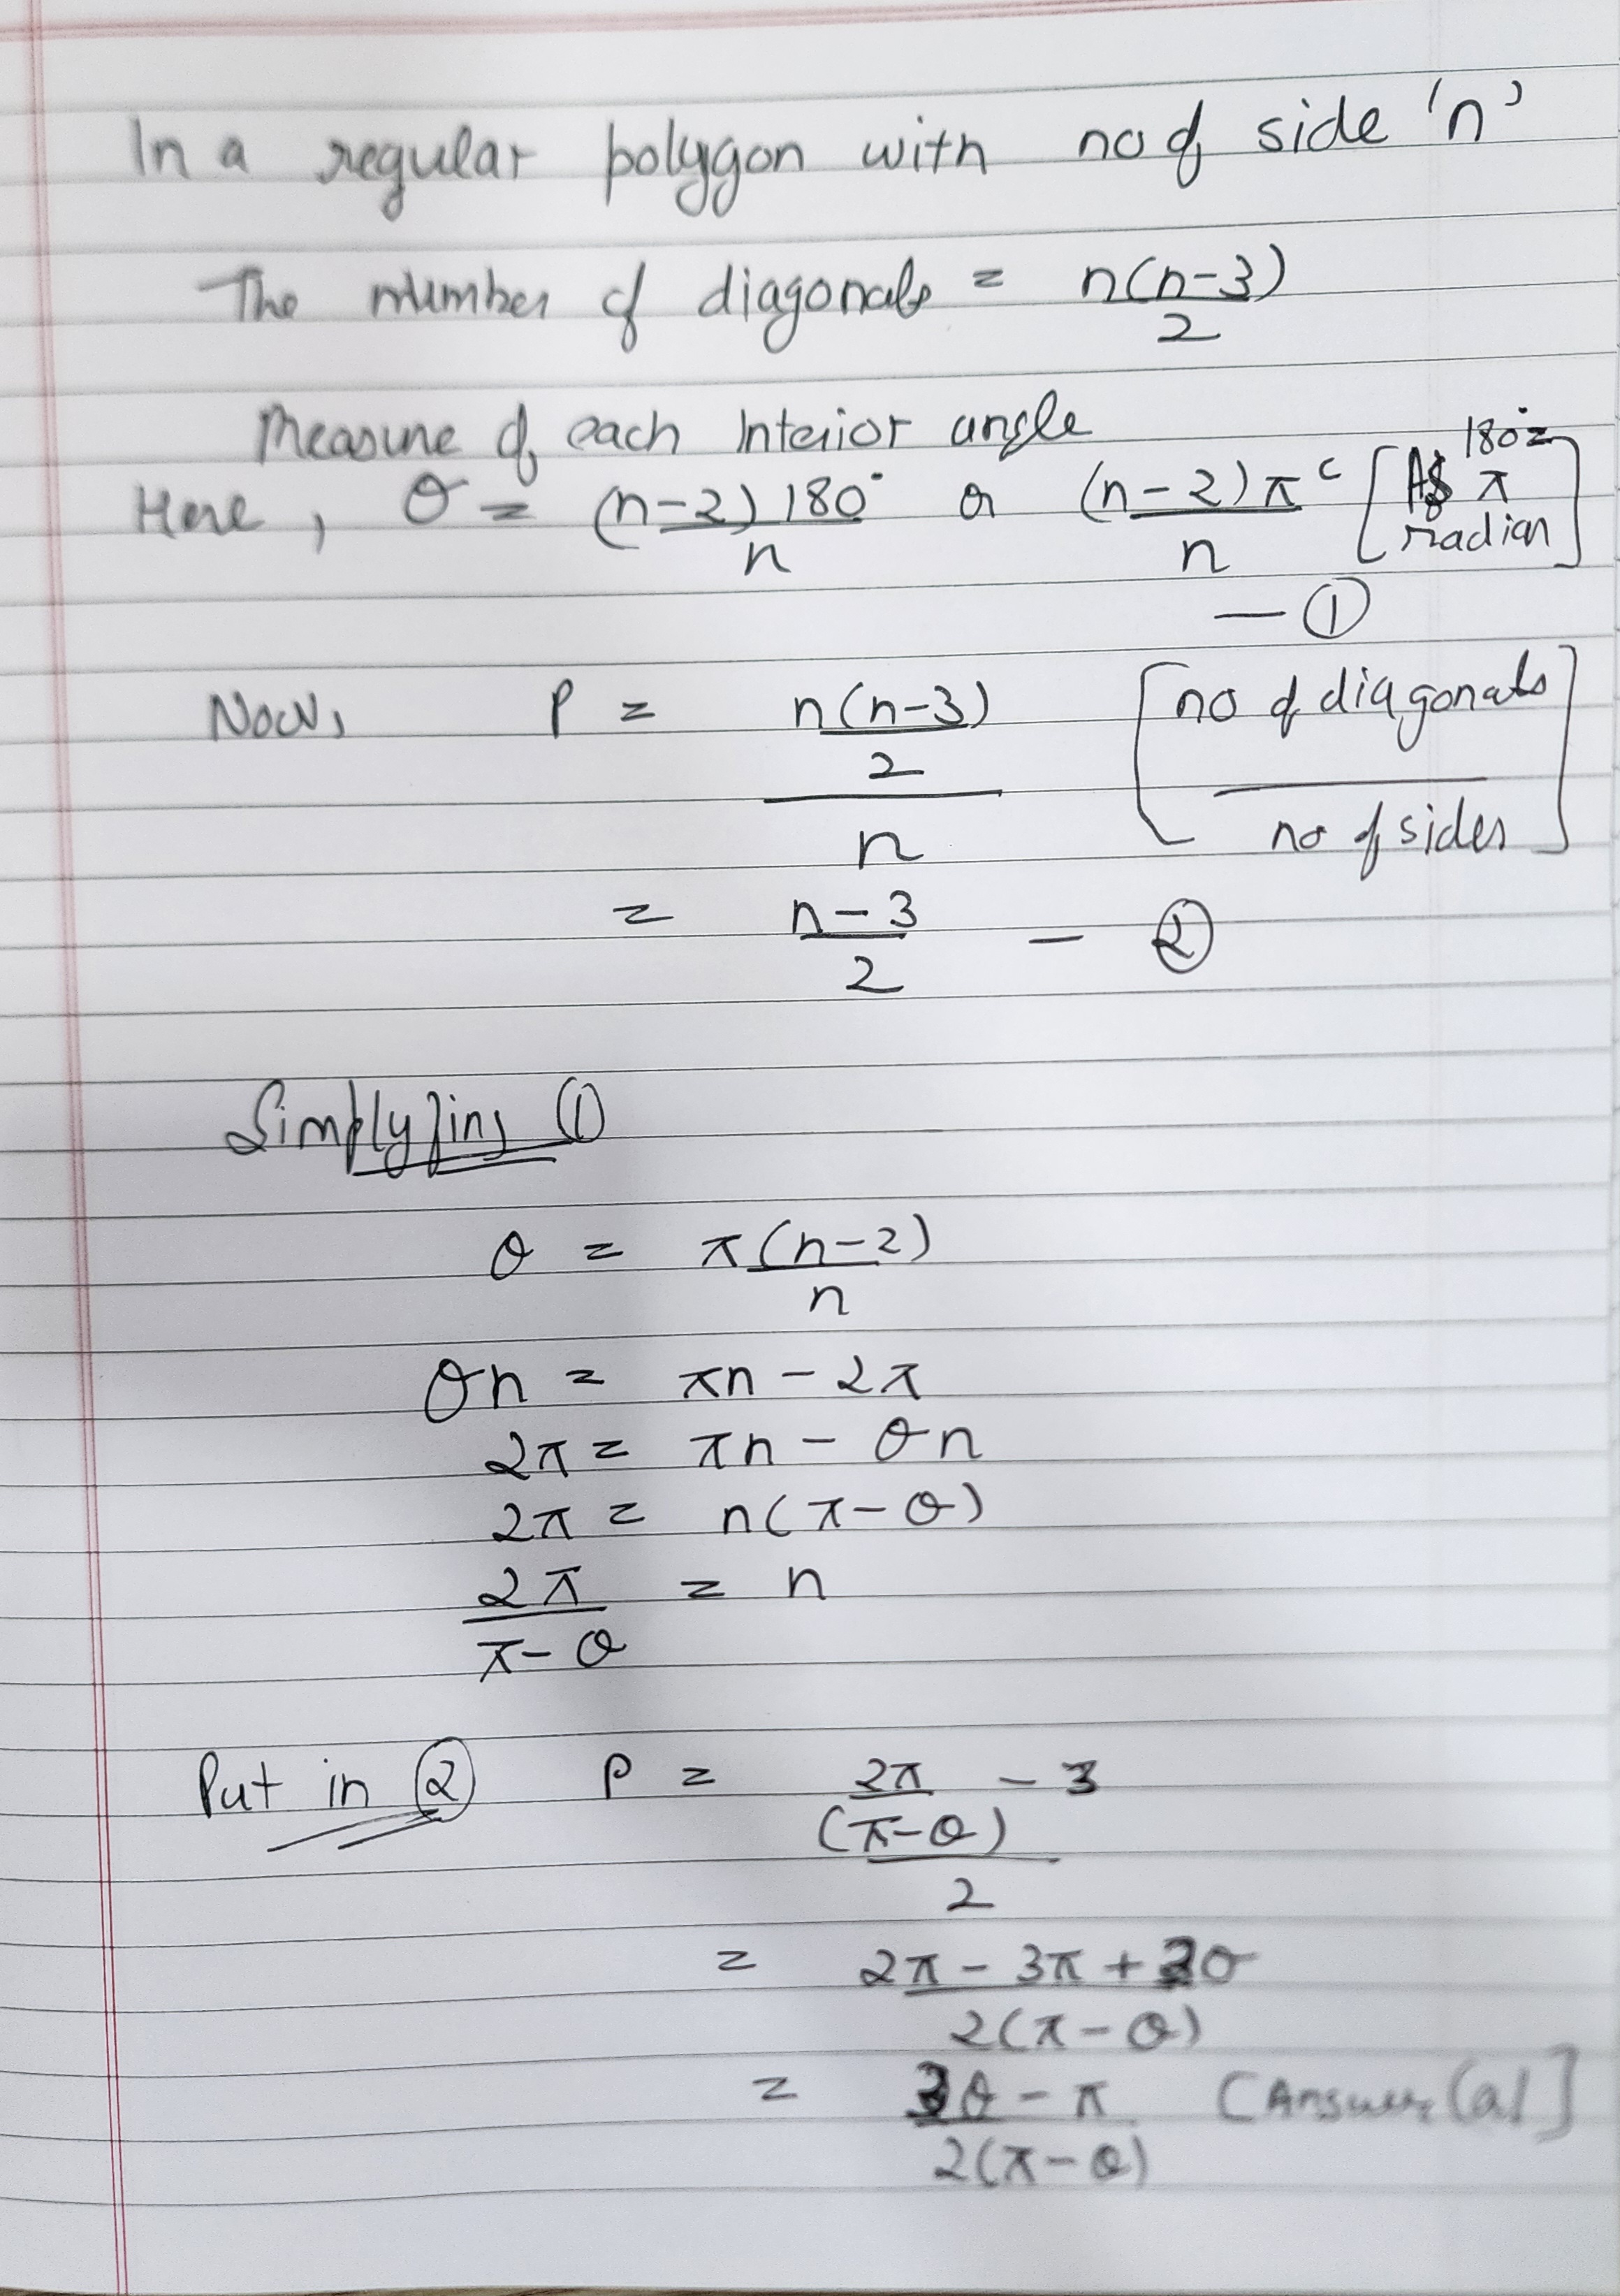 In a regular polygon with no of side 'n'
The number of diagonals = n(n-3)/2
Measure of each Interior angle
Here, θ = (n-2)180°/n or (n-2)π^c/n [As 180° = π radian]
— ①
Now, P = (n(n-3)/2)/n [no of diagonals/no of sides]
= (n-3)/2 — ②
Simplyfing ①
θ = π(n-2)/n
θn = πn - 2π
2π = πn - θn
2π = n(π-θ)
2π/(π-θ) = n
Put in ② P = (2π/(π-θ) - 3)/2
= (2π - 3π + 3θ)/2(π-θ)
= (3θ - π)/2(π-θ) [Answer (a)]